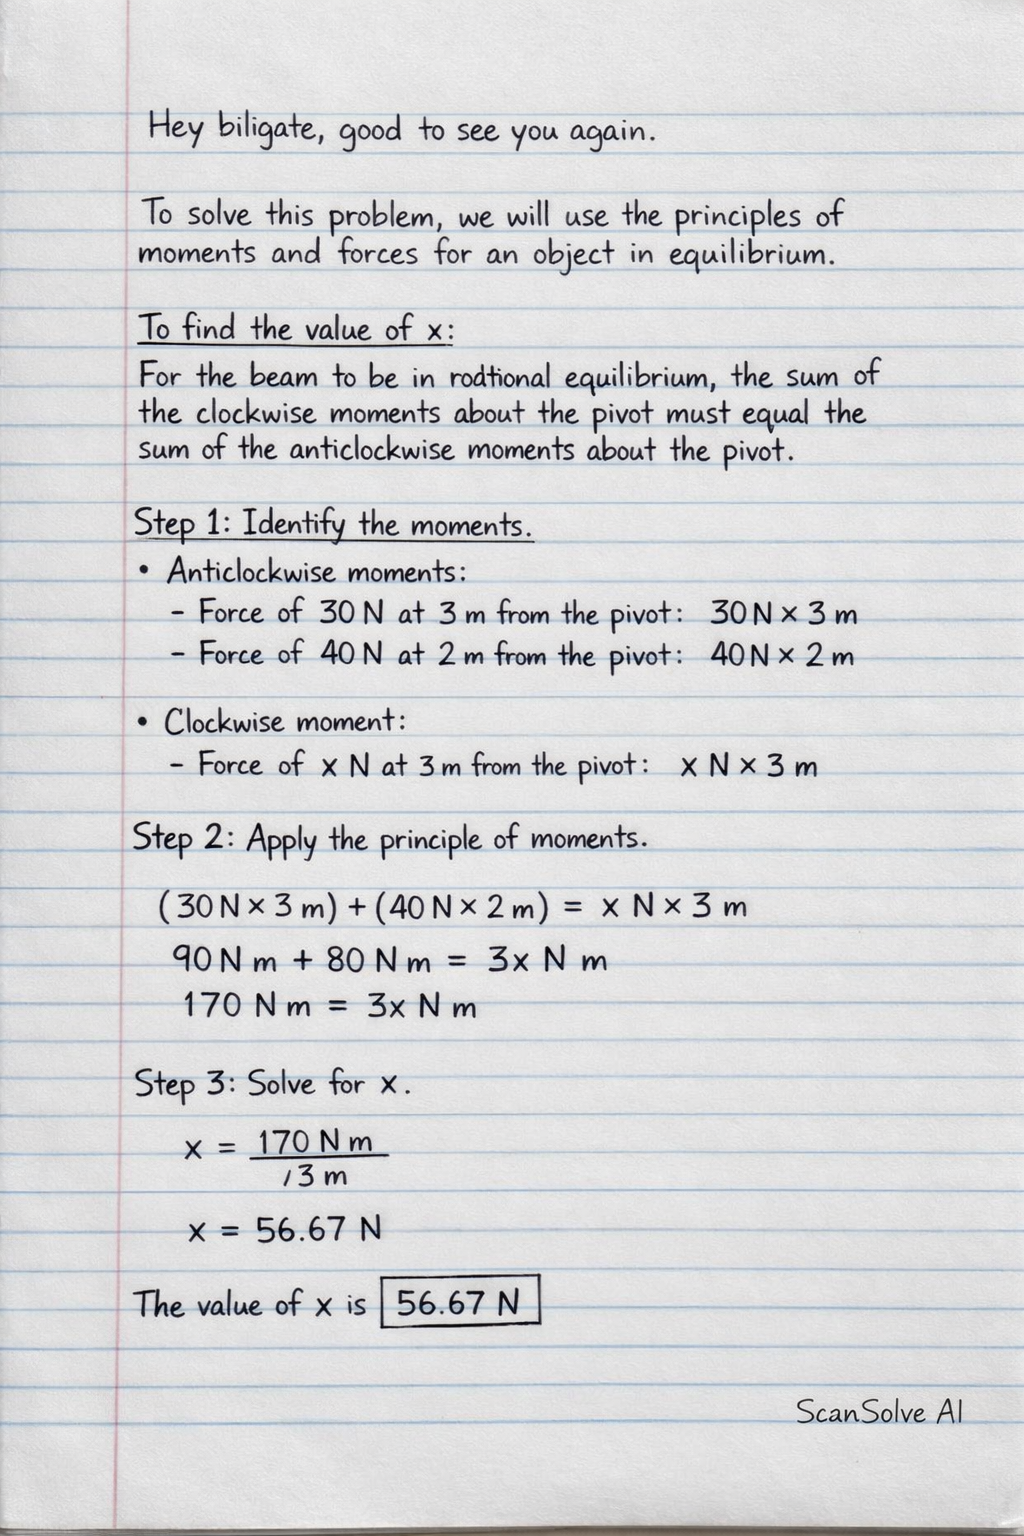 Hey biligate, good to see you again.
To solve this problem, we will use the principles of
moments and forces for an object in equilibrium.
To find the value of x:
For the beam to be in rodtional equilibrium, the sum of
the clockwise moments about the pivot must equal the
sum of the anticlockwise moments about the pivot.
Step 1: Identify the moments.
• Anticlockwise moments:
– Force of 30 N at 3 m from the pivot: 30 N × 3 m
– Force of 40 N at 2 m from the pivot: 40 N × 2 m
• Clockwise moment:
– Force of x N at 3 m from the pivot: x N × 3 m
Step 2: Apply the principle of moments.
(30 N × 3 m) + (40 N × 2 m) = x N × 3 m
90 N m + 80 N m = 3x N m
170 N m = 3x N m
Step 3: Solve for x.
x = 170 N m
/ 3 m
x = 56.67 N
The value of x is 56.67 N
ScanSolve AI